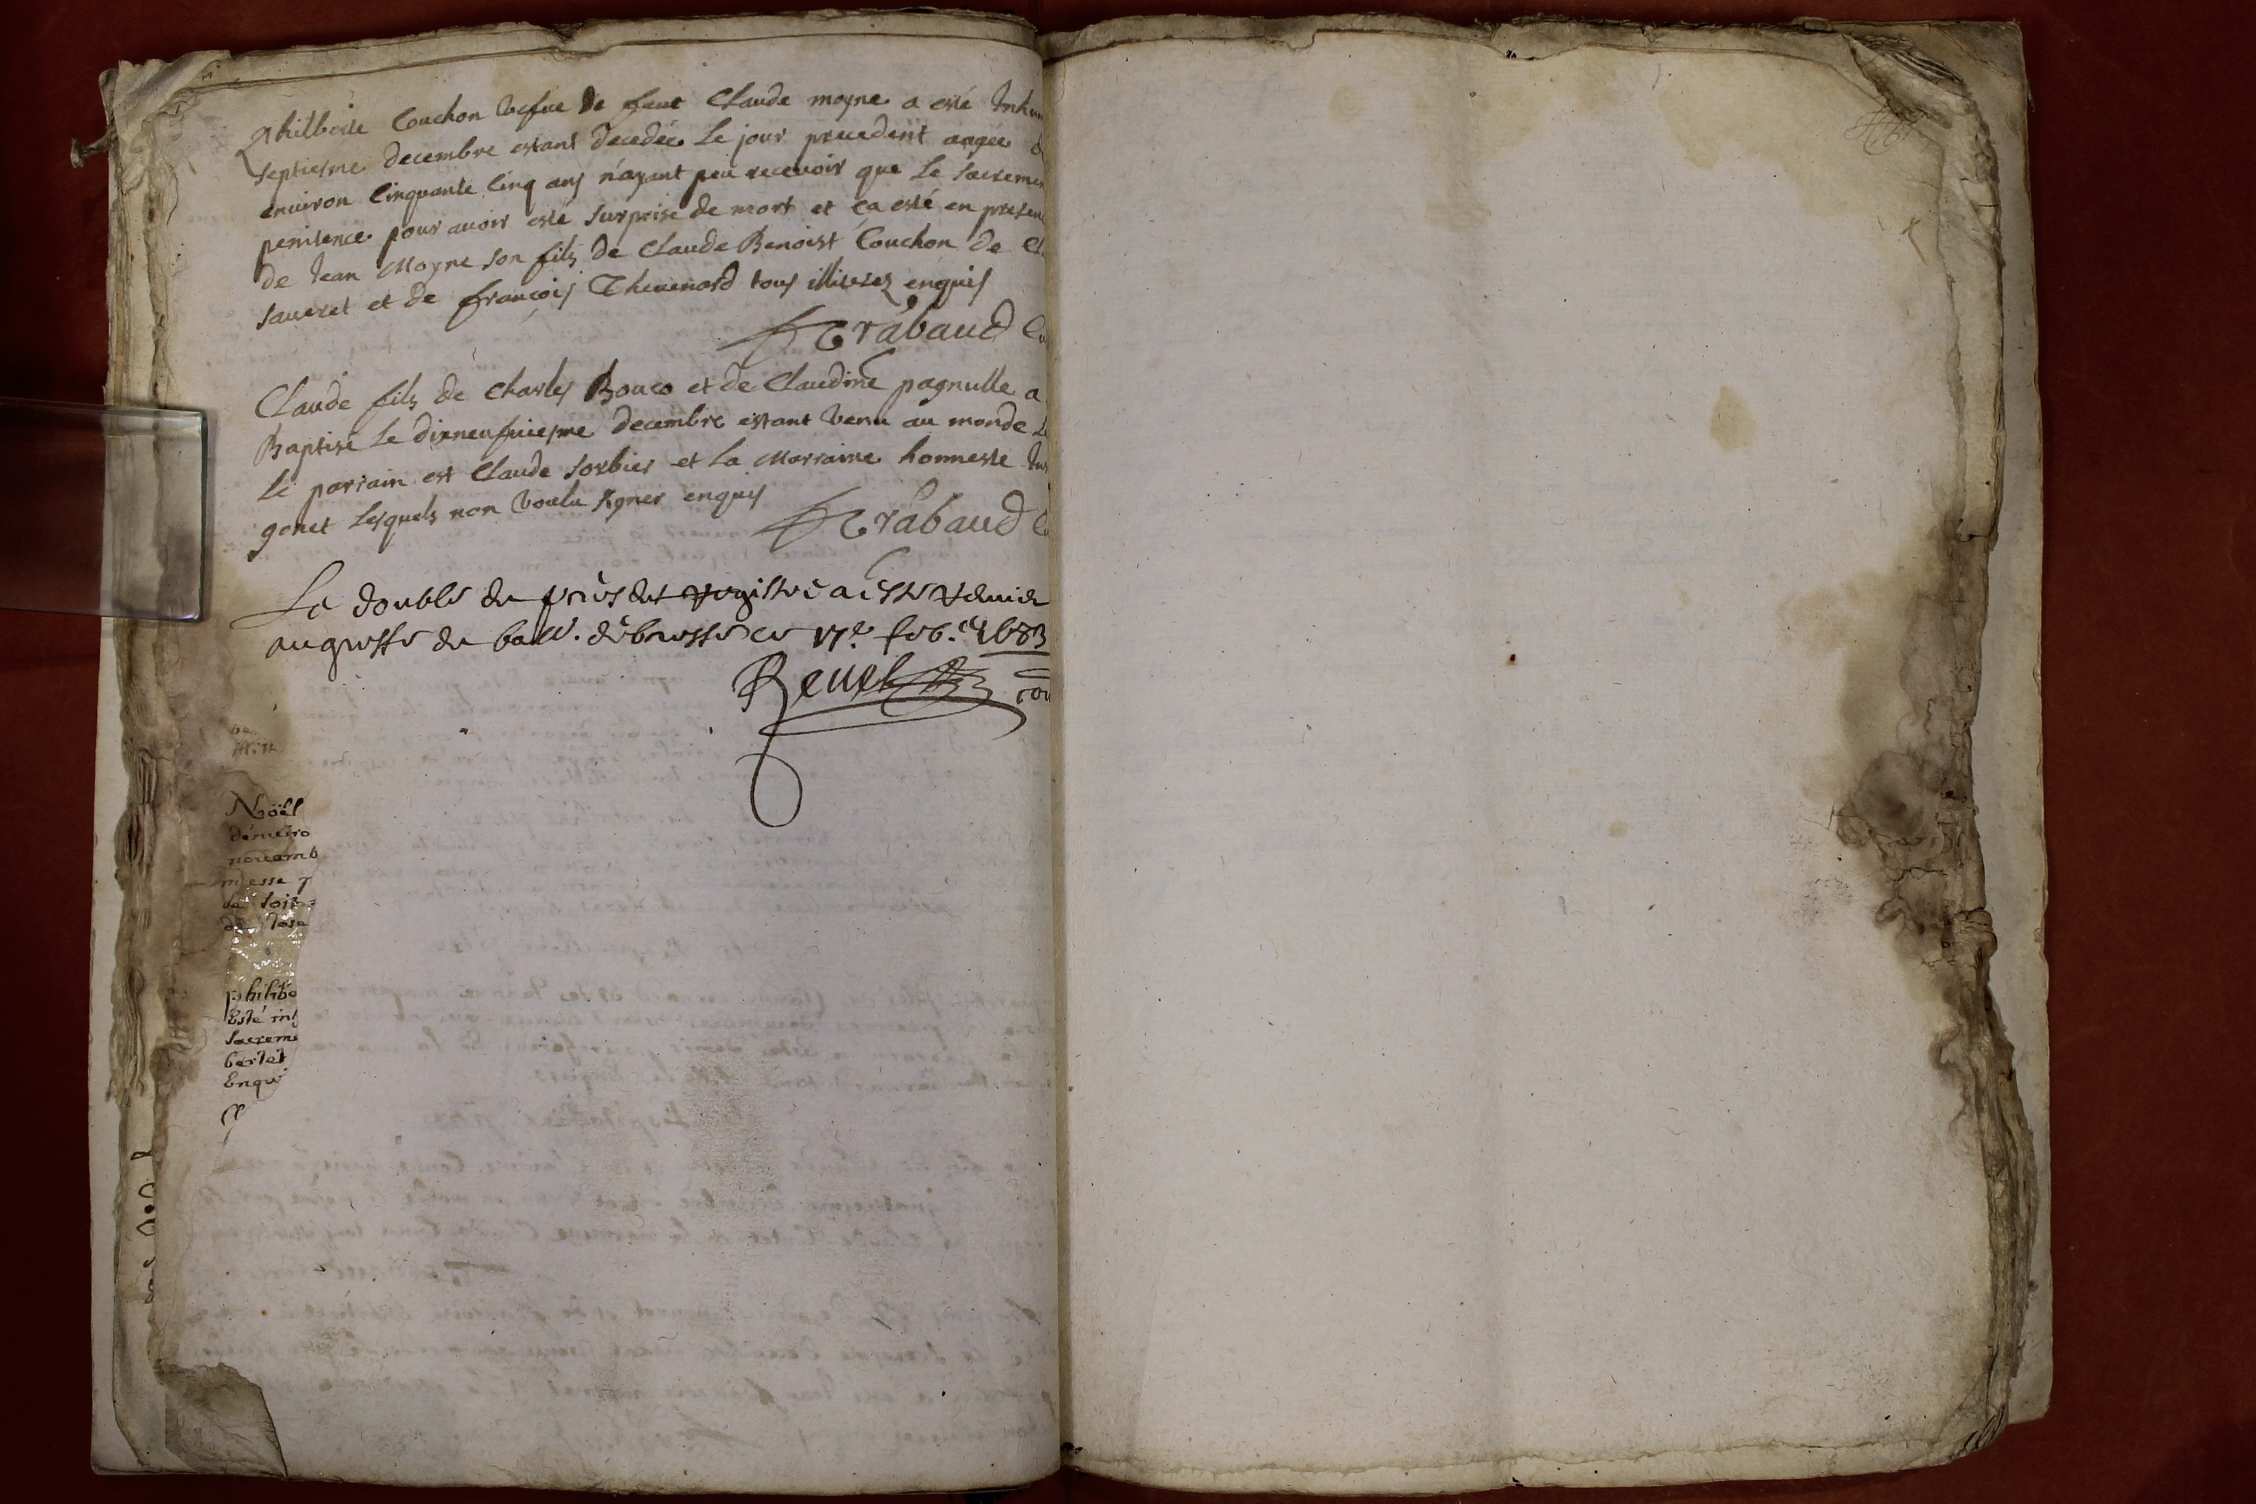 Philberte Couchon vefue de feut Claude moyne a esté Inhum
septiesme decembre estant decedée le jour precedent aagée d
enuiron Cinquante Cinq ans n'ayant peu receuoir que le sacremen
penitence pour auoir esté surprise de mort et ça esté en presen
de Jean Moyne son filz de Claude Benoist Couchon de Cl
saueret et de françois Theuenard tous illiterez enquis
Trabaud Cu
Claude filz de Charles Bouco et de Claudine pagnulle a
Baptisé le dixneufuiesme decembre estant venu au monde le
le parrain est Claude sorbier et la Marraine honneste
gonet lesquels non voulu signer enquis
Trabaud C
Le double du presdt registre a esté remis
au greffe du baill. de bresse ce 17e feb. 1683
Reuel
Noël
demeuro
nouamb
messe
de Jose
philibe
Esté inh
sacreme
bertet
Enqui